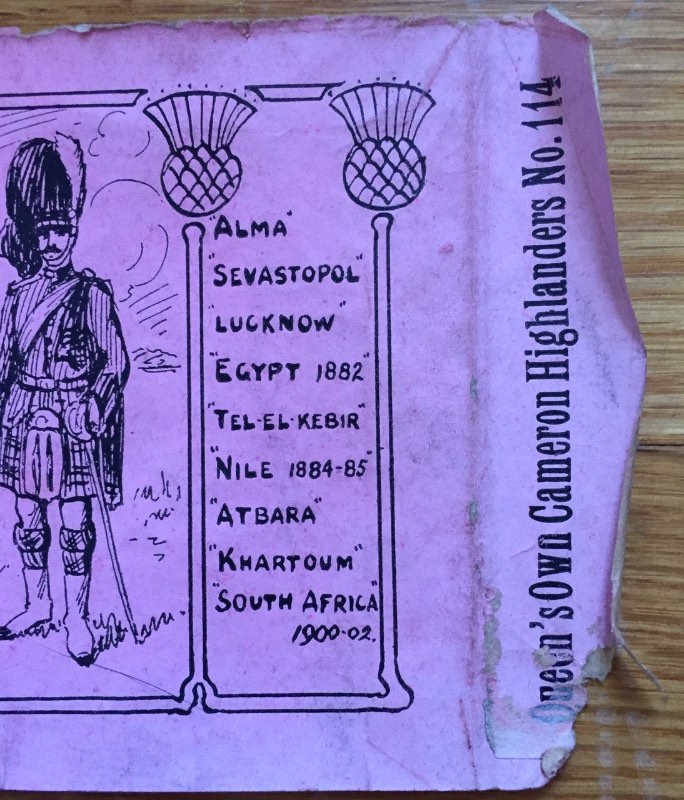 "ALMA"
"SEVASTOPOL"
"LUCKNOW"
"EGYPT 1882"
"TEL-EL-KEBIR"
"NILE 1884-85"
"ATBARA"
"KHARTOUM"
"SOUTH AFRICA"
1900-02.
Queen's Own Cameron Highlanders No. 114